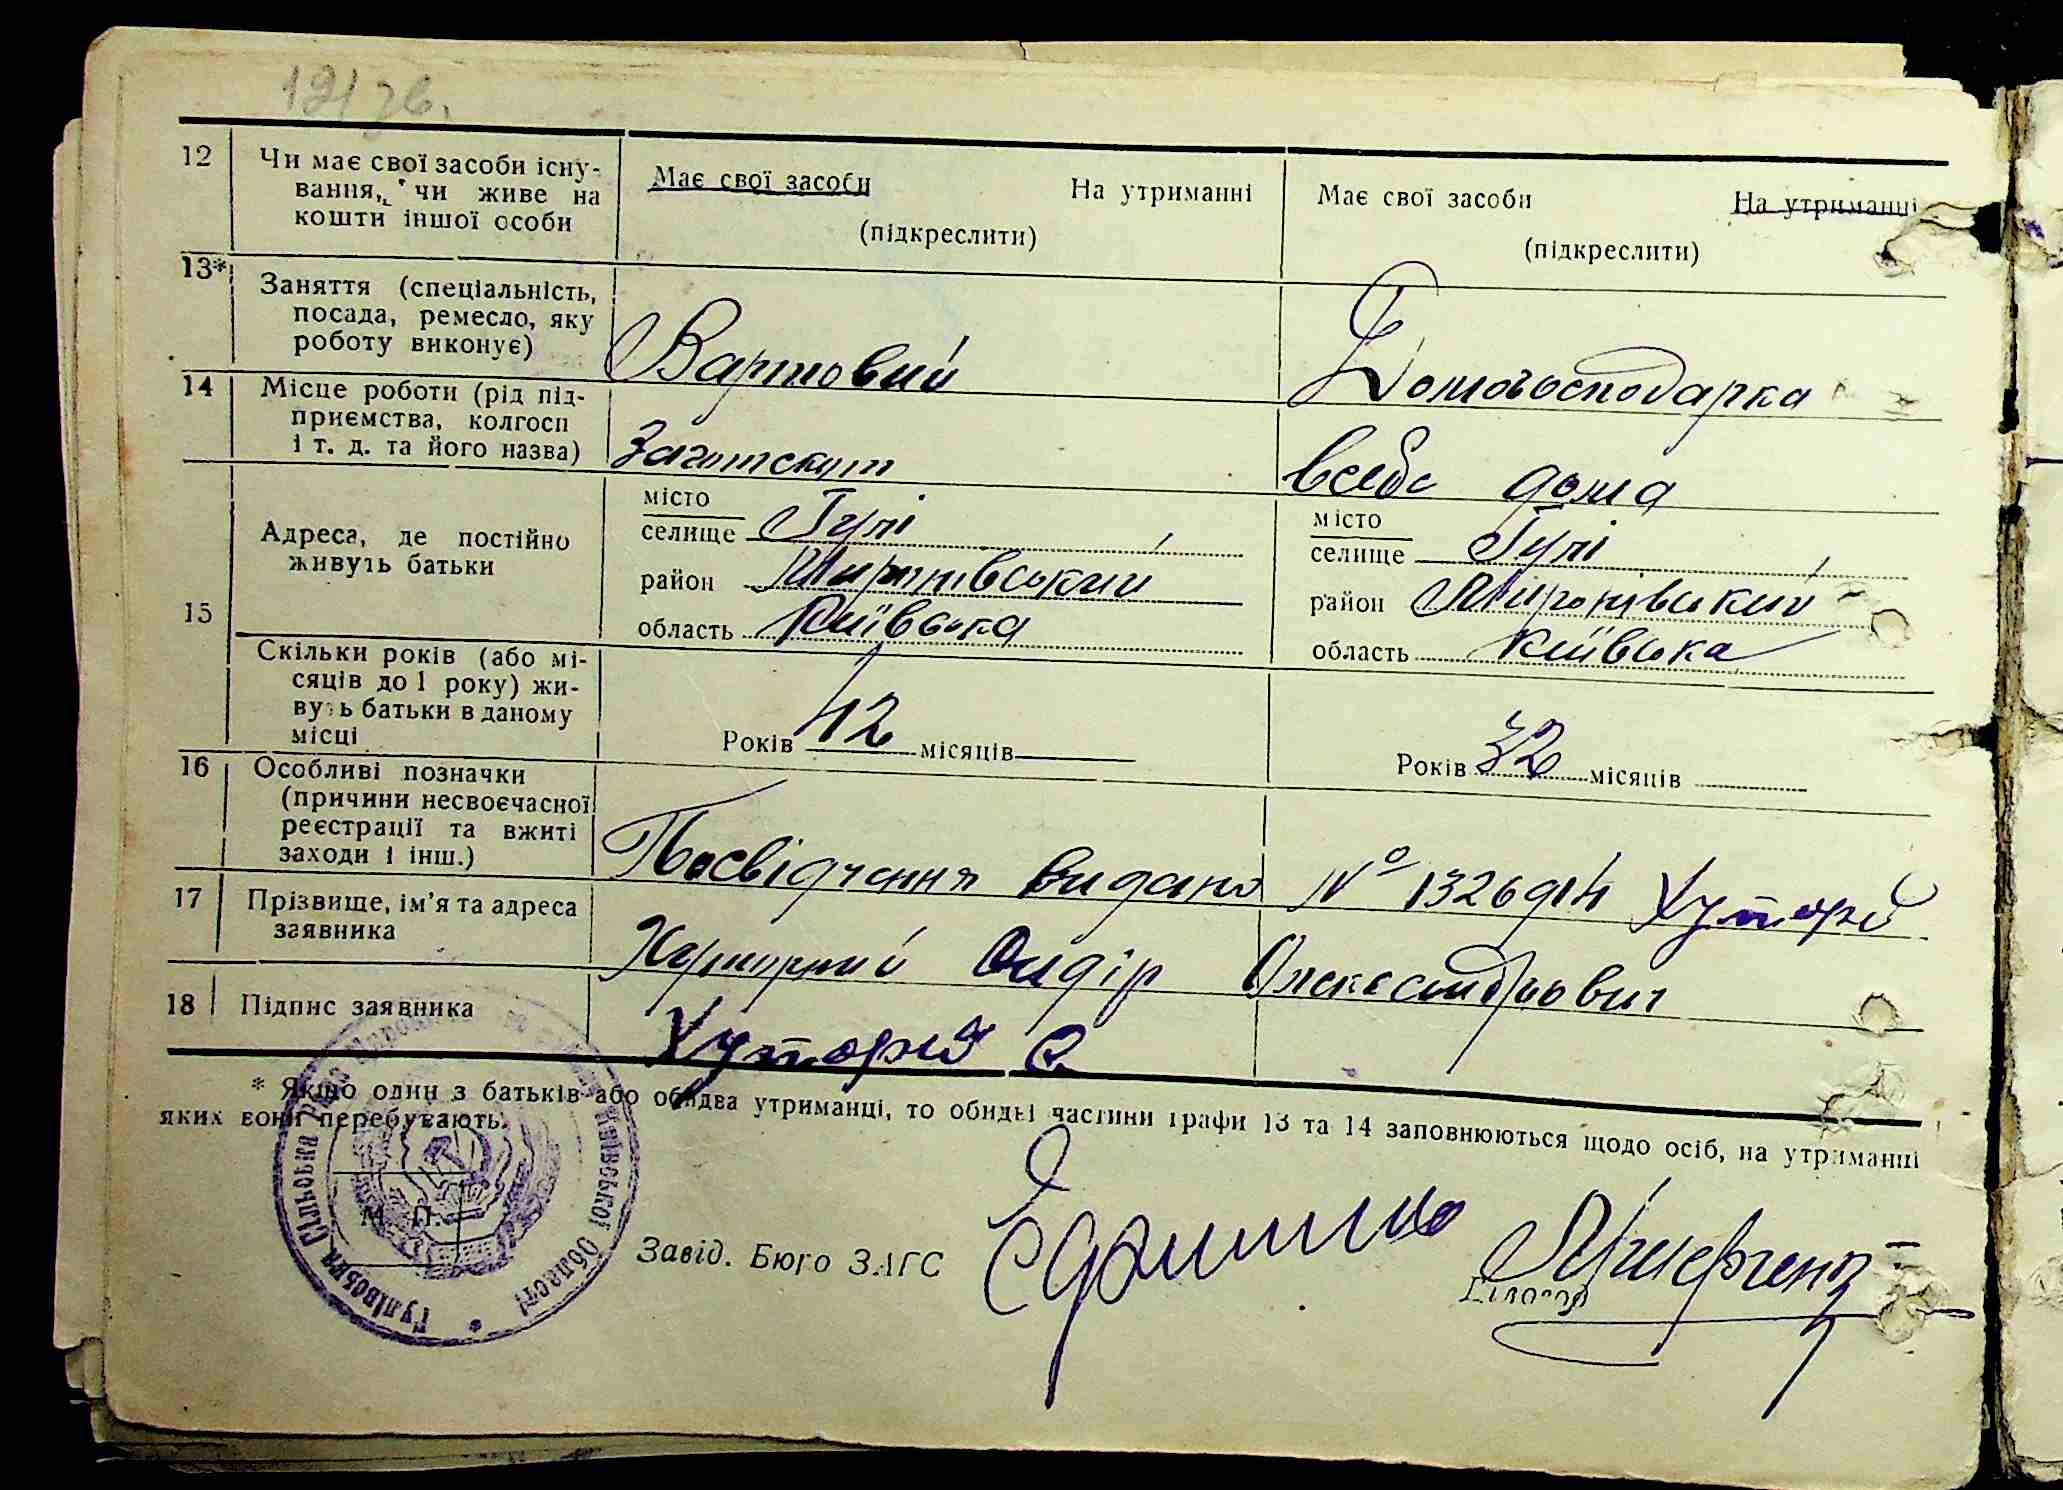 12
Чи має свої засоби існу-
вання, чи живе на
кошти іншої особи
Має свої засоби На утриманні
(підкреслити)
Має свої засоби На утриманні
(підкреслити)
13*
Заняття (спеціальність,
посада, ремесло, яку
роботу виконує)
Вартовий
Домогосподарка
14
Місце роботи (рід під-
приємства, колгосп
і т. д. та його назва)
Заготскот
всебе дома
15
Адреса, де постійно
живуть батьки
місто
селище Гулі
район Миронівський
область Київська
місто
селище Гулі
район Миронівський
область Київська
Скільки років (або мі-
сяців до 1 року) жи-
вуть батьки в даному
місці
Років 42 місяців
Років 32 місяців
16
Особливі позначки
(причини несвоєчасної
реєстрації та вжиті
заходи і інш.)
Посвідчання видано № 1326914 Хуторний
17
Прізвище, ім'я та адреса
заявника
Хуторний Сидір Олександрович
18
Підпис заявника
Хуторний С
* Якщо один з батьків або обидва утриманці, то обидві частини графи 13 та 14 заповнюються щодо осіб, на утриманні
яких вони перебувають.
М. П.
Гулівська Сільська Рада Київської Області
Завід. Бюро ЗАГС